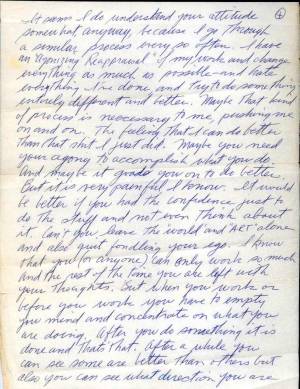 ④
It seems I do understand your attitude
somewhat, anyway, because I go through
a similar process every so often. I have
an "Agonizing Reappraisal" of my work and change
everything as much as possible - and hate
everything I've done, and try to do something
entirely different and better. Maybe that kind
of process is necessary to me, pushing me
on and on. The feeling that I can do better
than that shit I just did. Maybe you need
your agony to accomplish what you do.
And maybe it goads you on to do better.
But it is very painful I know. It would
be better if you had the confidence just to
do the stuff and not even think about
it. Can't you leave the world and "ART" alone
and also quit fondling your ego. I know
that you (or anyone) can only work so much
and the rest of the time you are left with
your thoughts. But when you work or
before you work you have to empty
you mind and concentrate on what you
are doing. After you do something it is
done and that's that. After a while you
can see some are better than others but
also you can see what direction you are